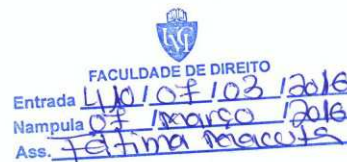 FACULDADE DE DIREITO
Entrada 440/07/03/2016
Nampula 07/março/2016
Ass. Fátima